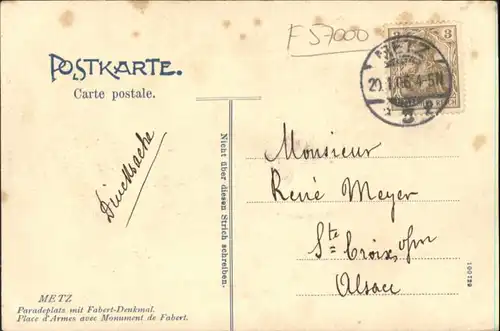 F 57000
3
METZ
20.1.06.4-5N
2
POSTKARTE.
Carte postale.
Drucksache
Nicht über diesen Strich schreiben.
Monsieur
René Meyer
Ste Croix
Alsace
100189
METZ
Paradeplatz mit Fabert-Denkmal.
Place d'Armes avec Monument de Fabert.